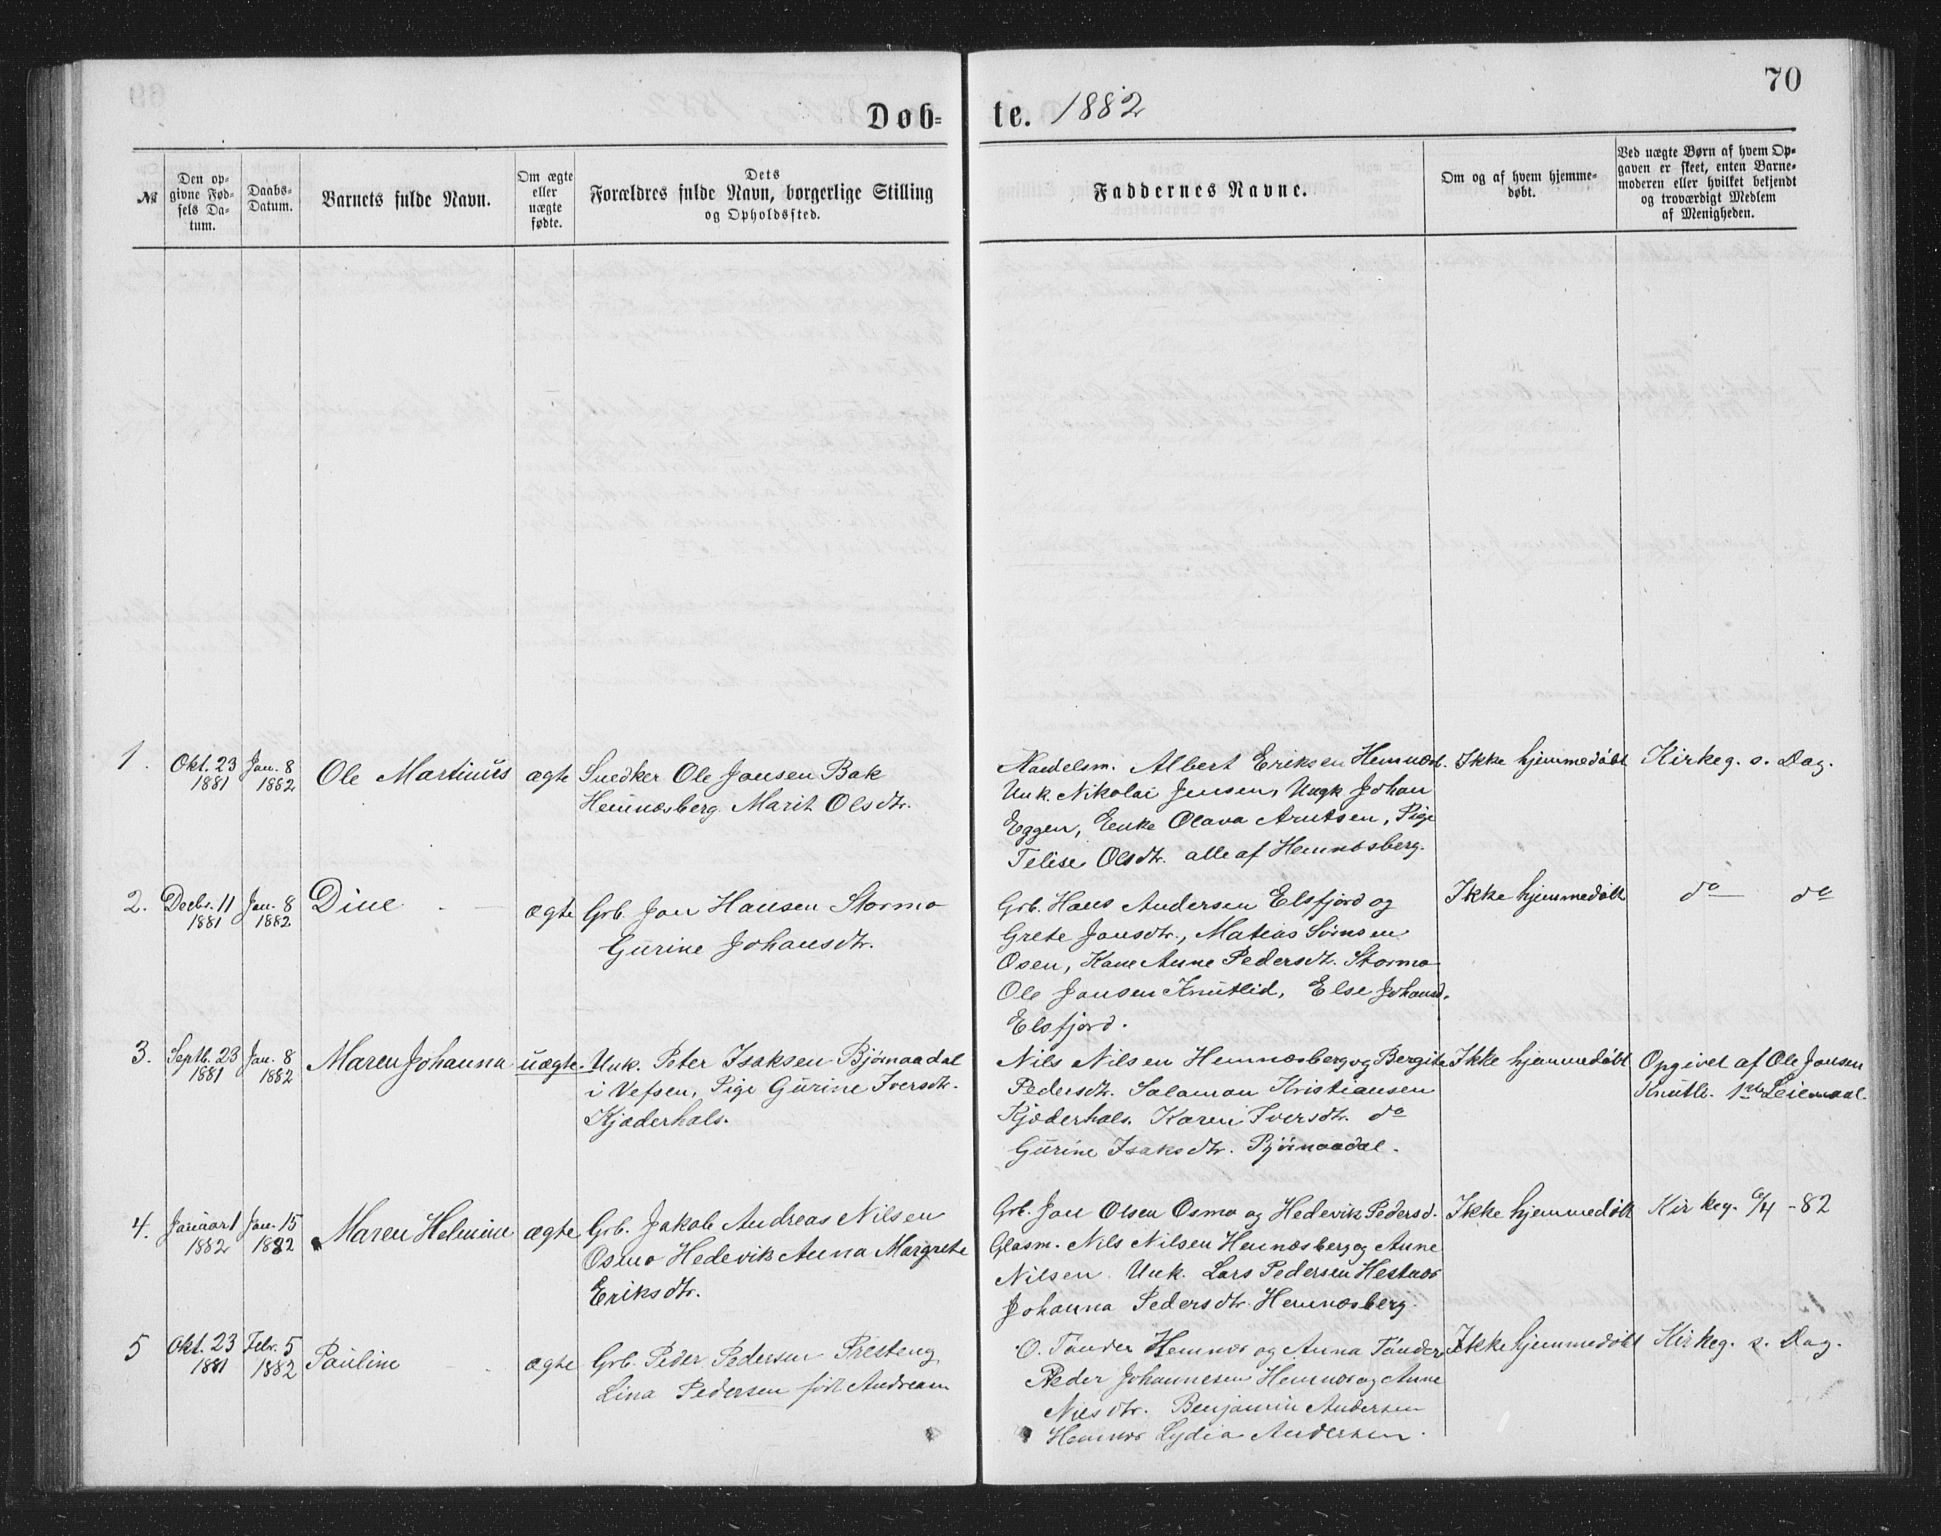 70
Døb-te. 1882
№
Den op-
givne Fød-
sels Da-
tum.
Daabs-
Datum.
Barnets fulde Navn.
Om ægte
eller
uægte
fødte.
Dets
Forældres fulde Navn, borgerlige Stilling
og Opholdssted.
Faddernes Navne.
Om og af hvem hjemme-
døbt.
Ved uægte Børn af hvem Op-
gaven er skeet, enten Barne-
moderen eller hvilket betjendt
og troværdigt Medlem
af Menigheden.
1.
Okt. 23
1881
Jan. 8
1882
Ole Martinus
ægte
Snedker Ole Jansen Bak
Hemnæsberg Marit Olsdtr.
Handelsm. Albert Eriksen Hemnæsb.
Unk. Nikolai Jensen, Ungk. Johan
Eggen, Enke Olava Arntsen, Pige
Telise Olsdtr. alle af Hemnæsberg.
Ikke hjemmedøbt
Kirkeg. s. Dag.
2.
Decbr. 11
1881
Jan. 8
1882
Dine
ægte
Grb. Jan Hansen Stormo
Gurine Johansdtr.
Grb. Hans Andersen Elsfjord og
Grete Jansdtr., Mateas Sørnsen
Osen, Kone Anne Pedersdt. Stormo
Ole Jansen Knutlid, Else Johansd.
Elsfjord.
Ikke hjemmedøbt
do — do
3.
Septb. 23
1881
Jan. 8
1882
Maren Johanna
uægte.
Unk. Peter Isaksen Bjørnaadal
i Vefsen, Pige Gurine Iversdtr.
Kjæderhals.
Nils Nilsen Hemnæsberg og Bergite
Pedersdtr. Salamon Kristiansen
Kjæderhals. Karen Iversdtr. do
Gurine Isaksdtr. Bjørnaadal.
Ikke hjemmedøbt
Opgivet af Ole Jansen
Knutli. 1ste Leiermaal.
4.
Januar 1
1882
Jan. 15
1882
Maren Helmine
ægte
Grb. Jakob Andreas Nilsen
Osmo Hedevik Anna Margrete
Eriksdtr.
Grb. Jan Olsen Osmo og Hedevik Pedersd.
Glasm. Nils Nilsen Hemnæsberg og Anne
Nilsen. Unk. Lars Pedersen Hestnæs
Johanna Pedersdtr. Hemnæsberg.
Ikke hjemmedøbt
Kirkeg. 6/4 - 82
5
Okt. 23
1881
Febr. 5
1882
Pauline
ægte
Grb. Peder Pedersen Presteng
Lina Pedersen født Andreasen
O. Tønder Hemnæs og Anna Tønder
Peder Johannesen Hemnæs og Anne
Nilsdtr. Benjamin Andersen
Hemnæs Lydia Andersen.
Ikke hjemmedøbt
Kirkeg. s. Dag.